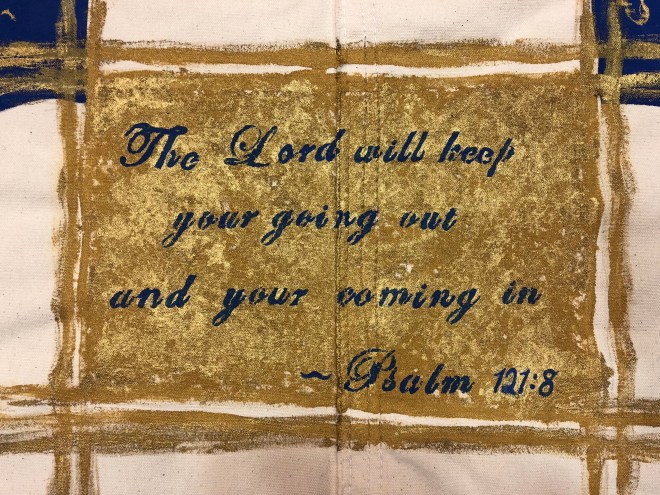 The Lord will keep
your going out
and your coming in
~ Psalm 121:8